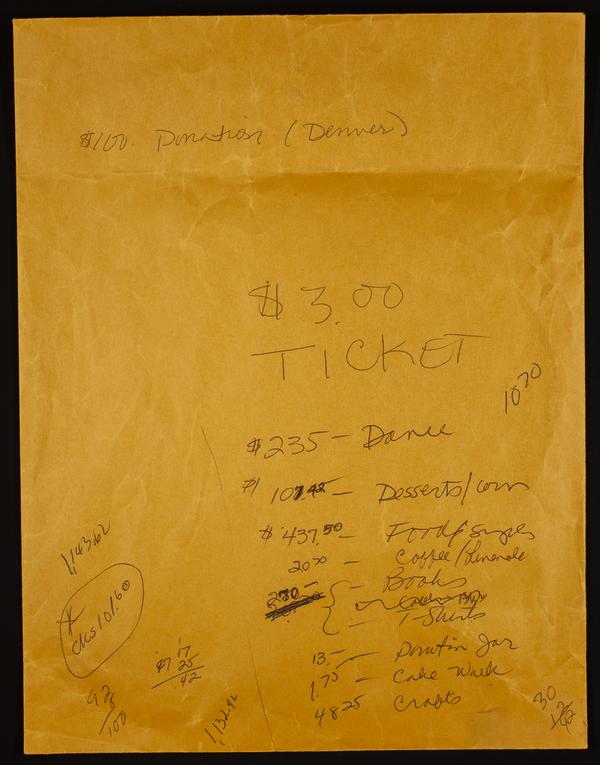 $100. Donation (Denver)
$3.00
TICKET
1070
$235 — Dance
$ 107.42 — Desserts/corn
$ 437.50 — Food/
20.50 — Coffee/Limonade
270 — Books
— T-Shirts
13.— — Donation Jar
1.75 — Cake Walk
48.25 Crafts
1,143.62
* cks 101.60
17
25
.42
92
8
100
1,132.92
30